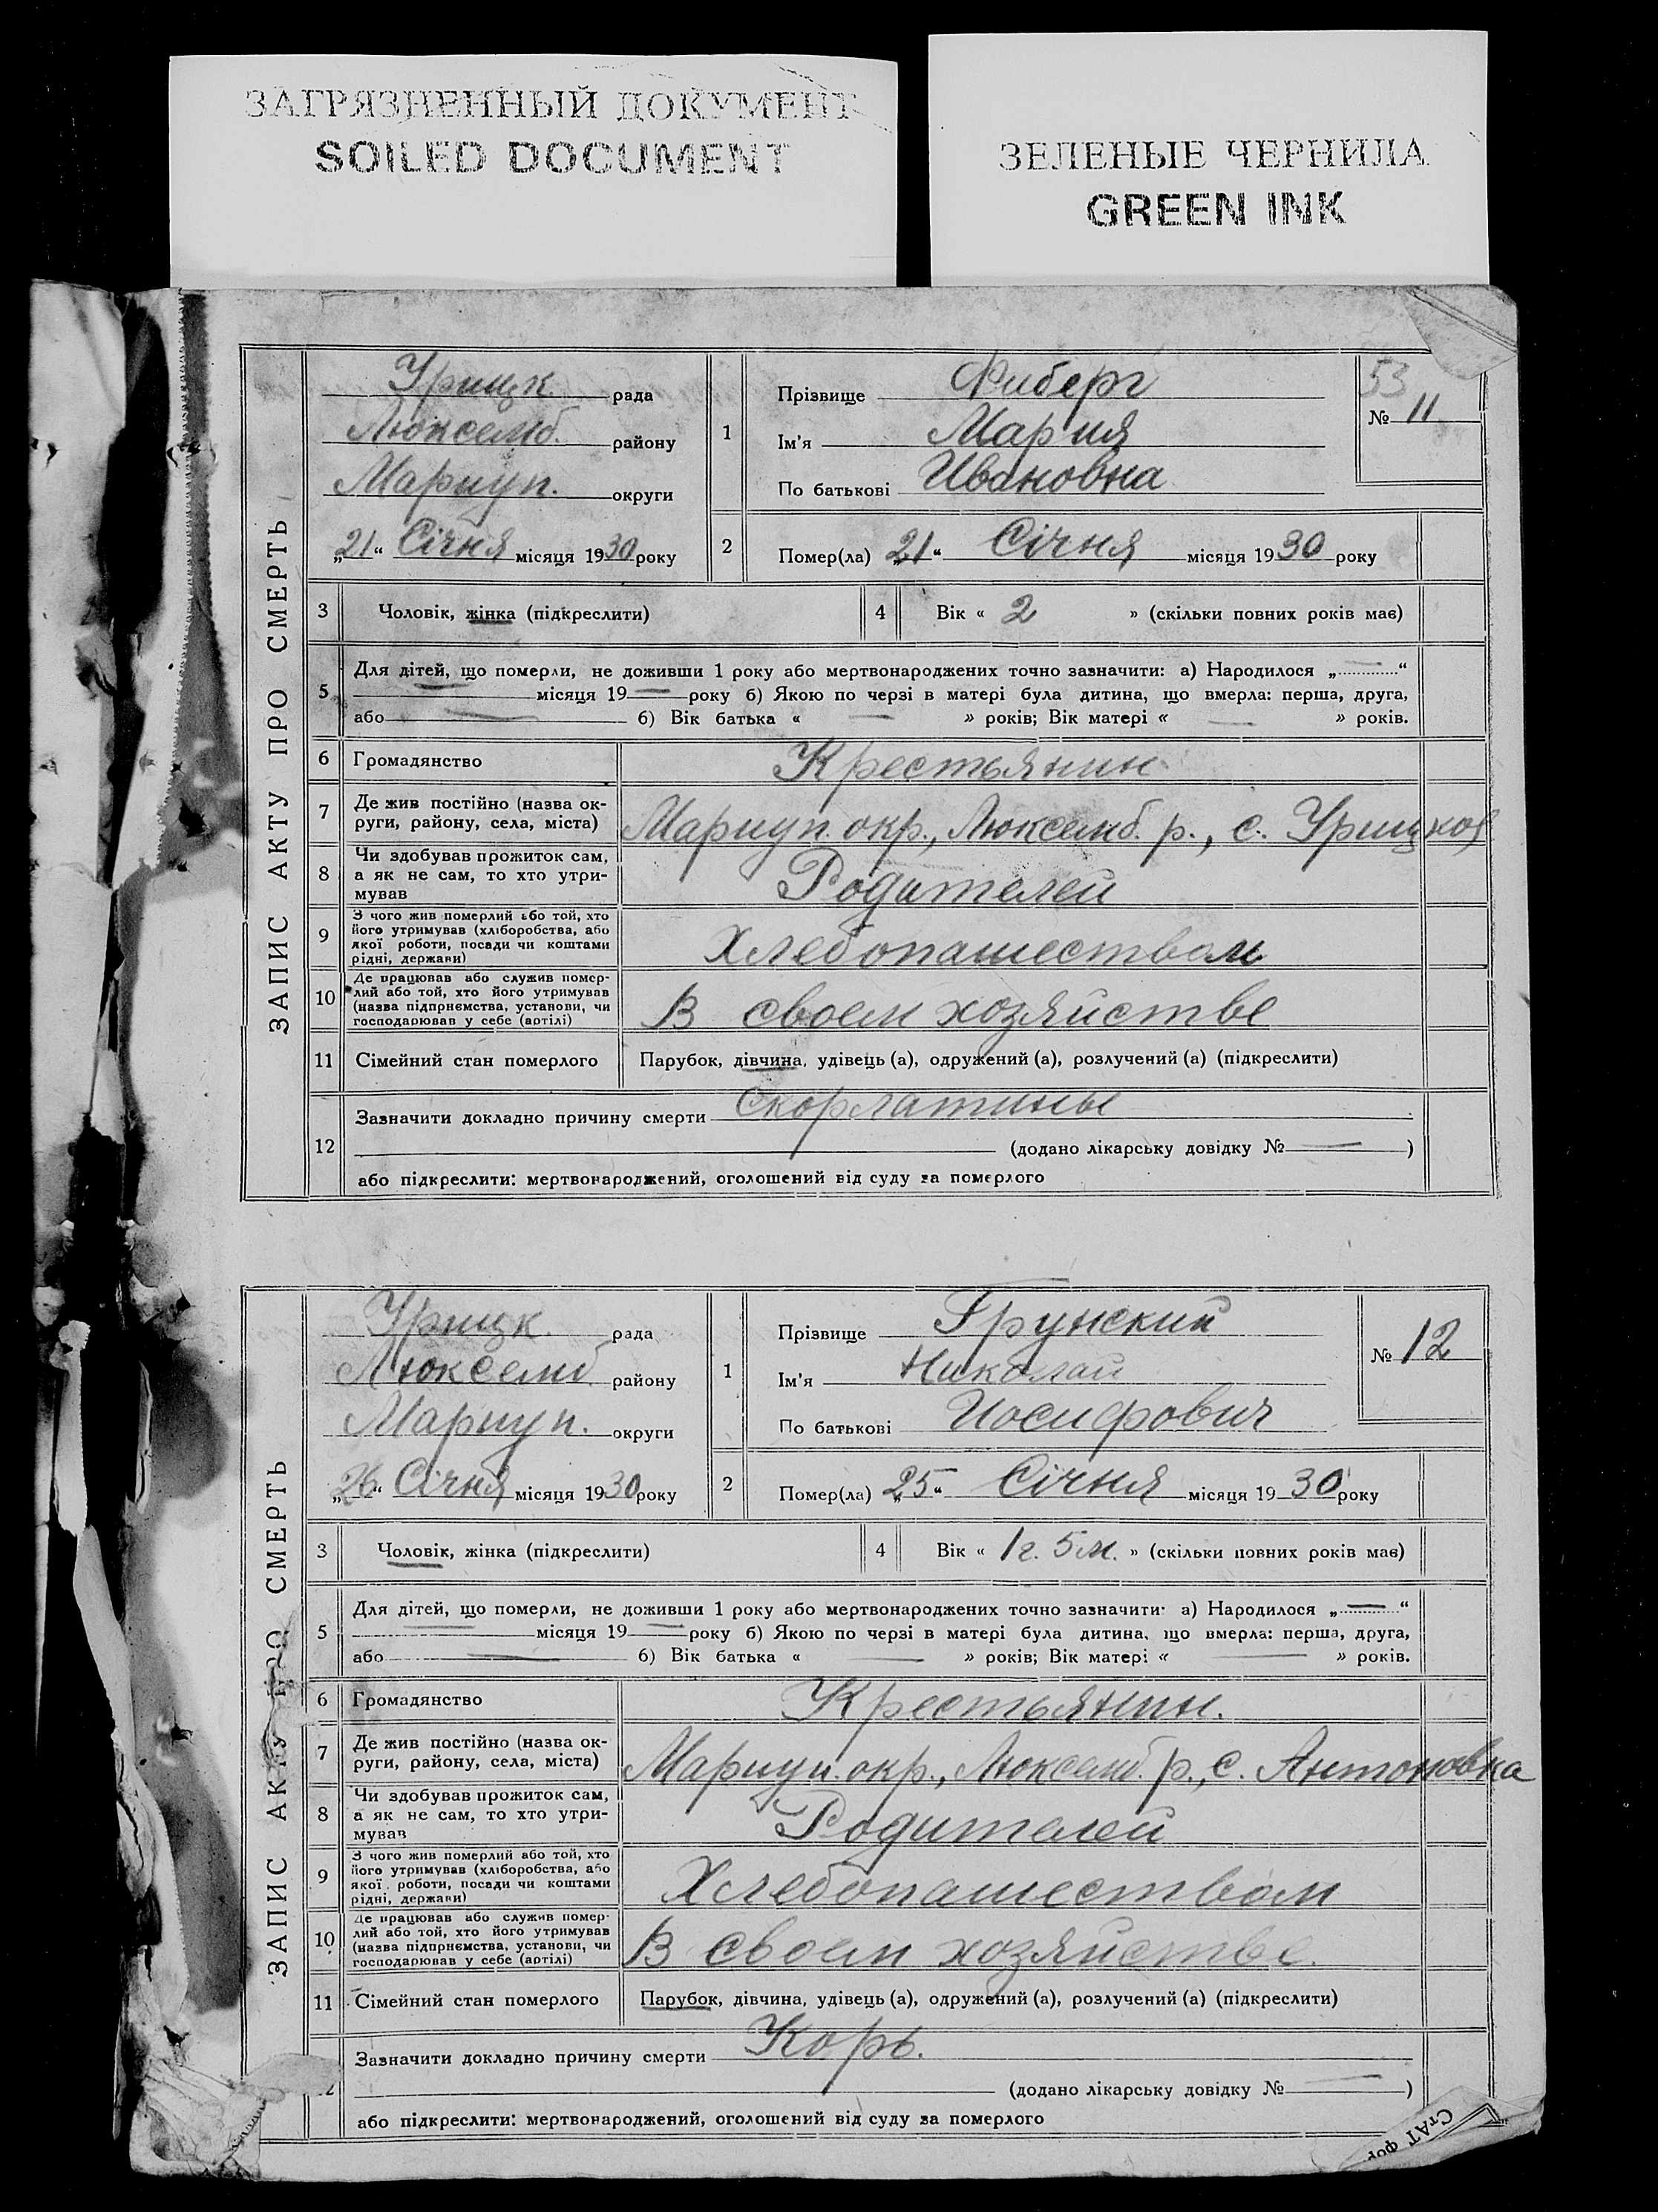 ЗАГРЯЗНЕННЫЙ ДОКУМЕНТ
SOILED DOCUMENT
ЗЕЛЕНЫЕ ЧЕРНИЛА
GREEN INK
ЗАПИС АКТУ ПРО СМЕРТЬ
Урицк. рада
Люксемб. району
Мариуп. округи
„21“ Січня місяця 1930 року
1
Прізвище Фиберг
Ім'я Мария
По батькові Ивановна
53
№ 11
2 Помер(ла) „21“ Січня місяця 1930 року
3 Чоловік, жінка (підкреслити) 4 Вік « 2 » (скільки повних років має)
5 Для дітей, що померли, не доживши 1 року або мертвонароджених точно зазначити: а) Народилося „—“
— місяця 19— року б) Якою по черзі в матері була дитина, що вмерла: перша, друга,
або — б) Вік батька « — » років; Вік матері « — » років.
6 Громадянство Крестьянин
7 Де жив постійно (назва ок-
руги, району, села, міста) Мариуп. окр., Люксемб. р., с. Урицкое
8 Чи здобував прожиток сам,
а як не сам, то хто утри-
мував Родителей
9 З чого жив померлий або той, хто
його утримував (хліборобства, або
якої роботи, посади чи коштами
рідні, держави) Хлебопашеством
10 Де працював або служив помер-
лий або той, хто його утримував
(назва підприємства, установи, чи
господарював у себе (артілі) В своем хозяйстве
11 Сімейний стан померлого Парубок, дівчина, удівець (а), одружений (а), розлучений (а) (підкреслити)
12 Зазначити докладно причину смерти Скорлатины
(додано лікарську довідку № — )
або підкреслити: мертвонароджений, оголошений від суду за померлого
ЗАПИС АКТУ ПРО СМЕРТЬ
Урицк. рада
Люксемб. району
Мариуп. округи
„26“ Січня місяця 1930 року
1
Прізвище Грунский
Ім'я Николай
По батькові Иосифович
№ 12
2 Помер(ла) „25“ Січня місяця 1930 року
3 Чоловік, жінка (підкреслити) 4 Вік « 1 г. 5 м. » (скільки повних років має)
5 Для дітей, що померли, не доживши 1 року або мертвонароджених точно зазначити: а) Народилося „—“
— місяця 19— року б) Якою по черзі в матері була дитина, що вмерла: перша, друга,
або — б) Вік батька « — » років; Вік матері « — » років.
6 Громадянство Крестьянин.
7 Де жив постійно (назва ок-
руги, району, села, міста) Мариуп. окр., Люксемб. р., с. Антоновка
8 Чи здобував прожиток сам,
а як не сам, то хто утри-
мував Родителей
9 З чого жив померлий або той, хто
його утримував (хліборобства, або
якої роботи, посади чи коштами
рідні, держави) Хлебопашеством
10 Де працював або служив помер-
лий або той, хто його утримував
(назва підприємства, установи, чи
господарював у себе (артілі) В своем хозяйстве.
11 Сімейний стан померлого Парубок, дівчина, удівець (а), одружений (а), розлучений (а) (підкреслити)
12 Зазначити докладно причину смерти Корь.
(додано лікарську довідку № — )
або підкреслити: мертвонароджений, оголошений від суду за померлого
СтАТ фор.